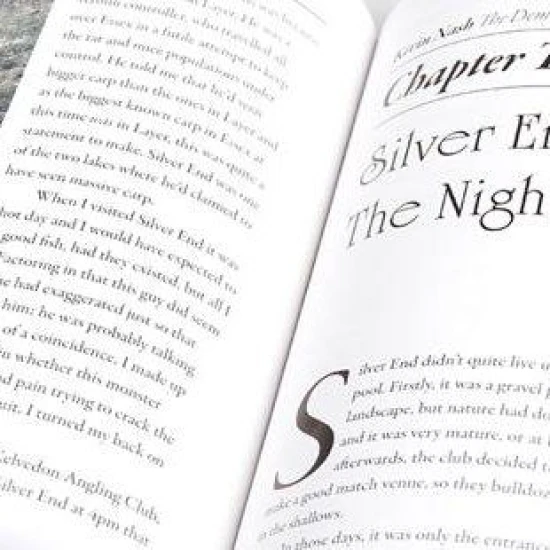 controller, who travelled all
over Essex in a futile attempt to keep
the rat and mice populations under
control. He told me that he'd seen
bigger carp than the ones in Layer and
as the biggest known carp in Essex at
this time was in Layer, this was quite a
statement to make. Silver End was one
of the two lakes where he'd claimed to
have seen massive carp.
When I visited Silver End it was
hot day and I would have expected to
good fish, had they existed, but all I
actoring in that this guy did seem
e had exaggerated just so that
him; he was probably talking
of a coincidence, I made up
n whether this monster
nd pain trying to crack the
uit, I turned my back on
elvedon Angling Club,
Silver End at 4pm that
Kevin Nash The Dem
Chapter T
Silver En
The Nigh
Silver End didn't quite live u
pool. Firstly, it was a gravel p
landscape, but nature had do
and it was very mature, or at
afterwards, the club decided t
make a good match venue, so they bulldoz
in the shallows.
In those days, it was only the entranc